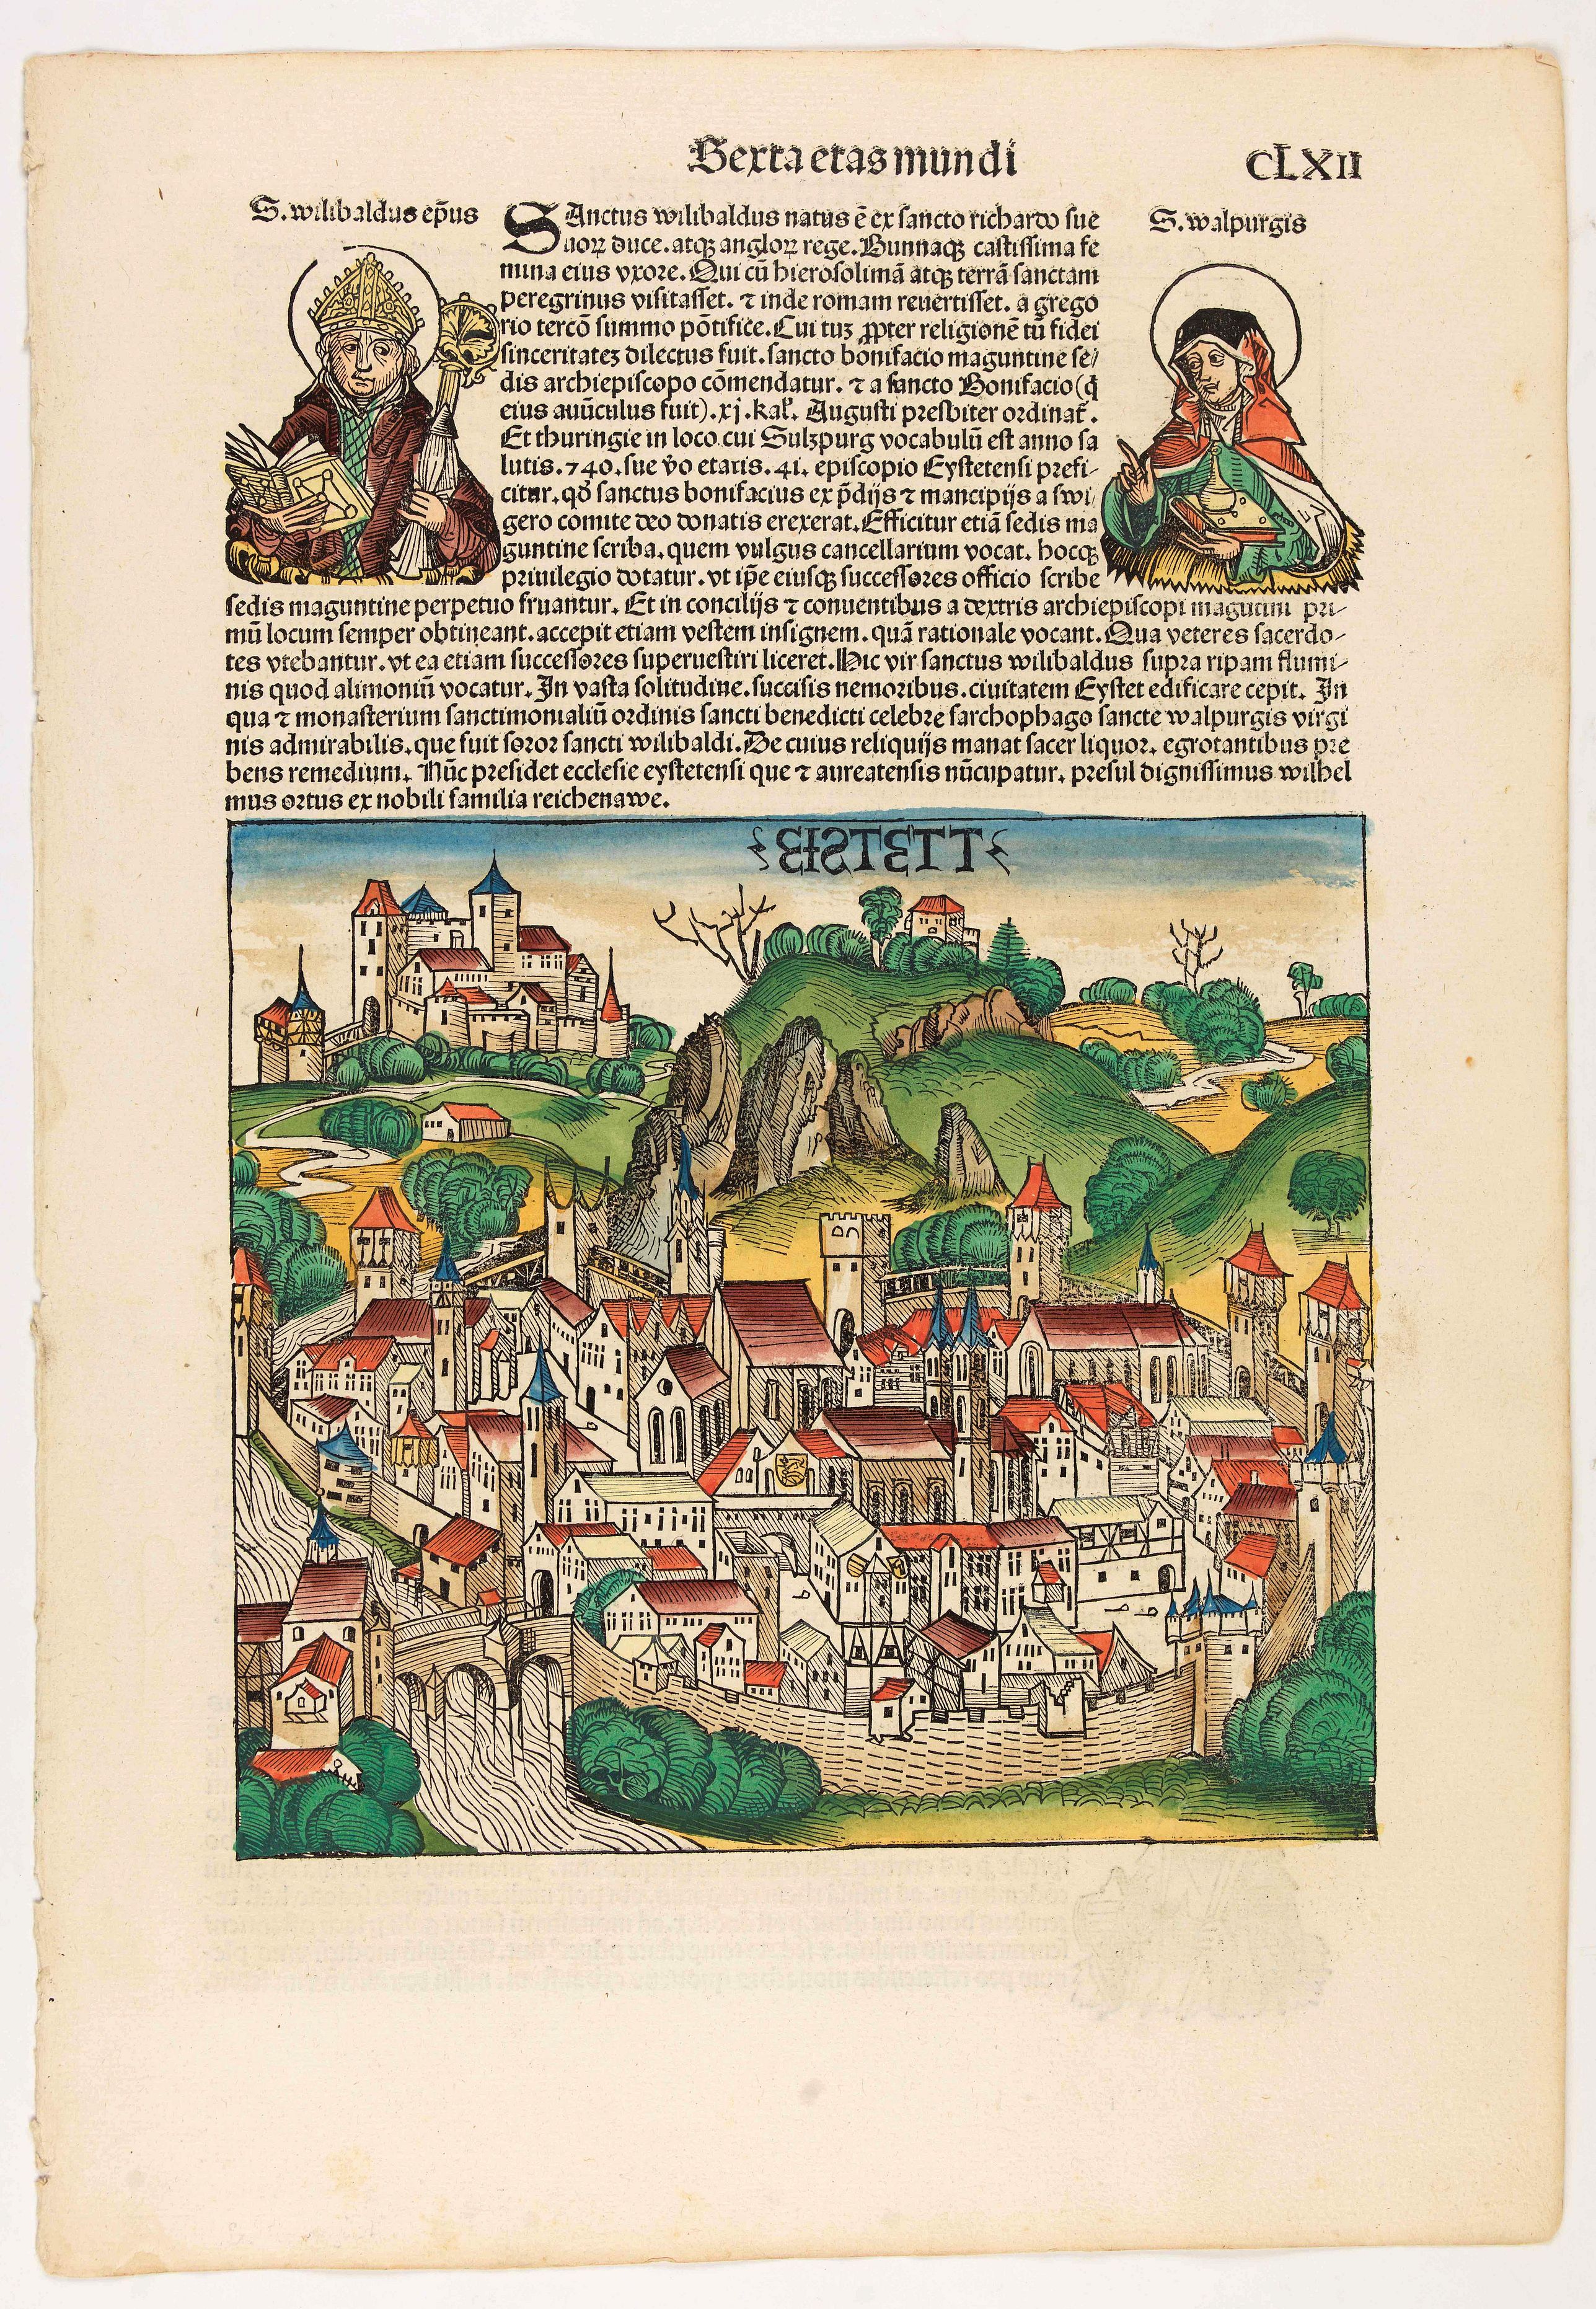 Sexta etas mundi
CLXII
S. wilibaldus ep̄us
SAnctus wilibaldus natus ē ex sancto richardo sue
uoꝝ duce. atqꝫ angloꝝ rege. Bunnaqꝫ castissima fe
mina eius vxore. Qui cū hierosolimā atqꝫ terrā sanctam
peregrinus visitasset. ⁊ inde romam reuertisset. a grego
rio tercō summo pōtifice. Cui tuꝫ ꝓpter religionē tū fidei
sinceritateꝫ dilectus fuit. sancto bonifacio maguntine se/
dis archiepiscopo cōmendatur. ⁊ a sancto Bonifacio (q̇
eius auūculus fuit). xj. kal. Augusti presbiter ordinat᷑.
Et thuringie in loco cui Sulzpurg vocabulū est anno sa
lutis. 740. sue v̊o etatis. 41. episcopio Eystetensi prefi-
citur. qd̓ sanctus bonifacius ex p̄dijs ⁊ mancipijs a swi
gero comite deo donatis erexerat. Efficitur etiā sedis ma
guntine scriba. quem vulgus cancellarium vocat. hocqꝫ
priuilegio dotatur. vt ip̄e eiusqꝫ successores officio scribe
sedis maguntine perpetuo fruantur. Et in concilijs ⁊ conuentibus a dextris archiepiscopi magūtini pri-
mū locum semper obtineant. accepit etiam vestem insignem. quā rationale vocant. Qua veteres sacerdo-
tes vtebantur. vt ea etiam successores superuestiri liceret. Hic vir sanctus wilibaldus supra ripam flumi-
nis quod alimoniū vocatur. In vasta solitudine. succisis nemoribus. ciuitatem Eystet edificare cepit. In
qua ⁊ monasterium sanctimonialiū ordinis sancti benedicti celebre sarchophago sancte walpurgis virgi
nis admirabilis. que fuit soror sancti wilibaldi. De cuius reliquijs manat sacer liquor. egrotantibus pre
bens remedium. Nūc presidet ecclesie eystetensi que ⁊ aureatensis nūcupatur. presul dignissimus wilhel
mus ortus ex nobili familia reichenawe.
S. walpurgis
EISTETT